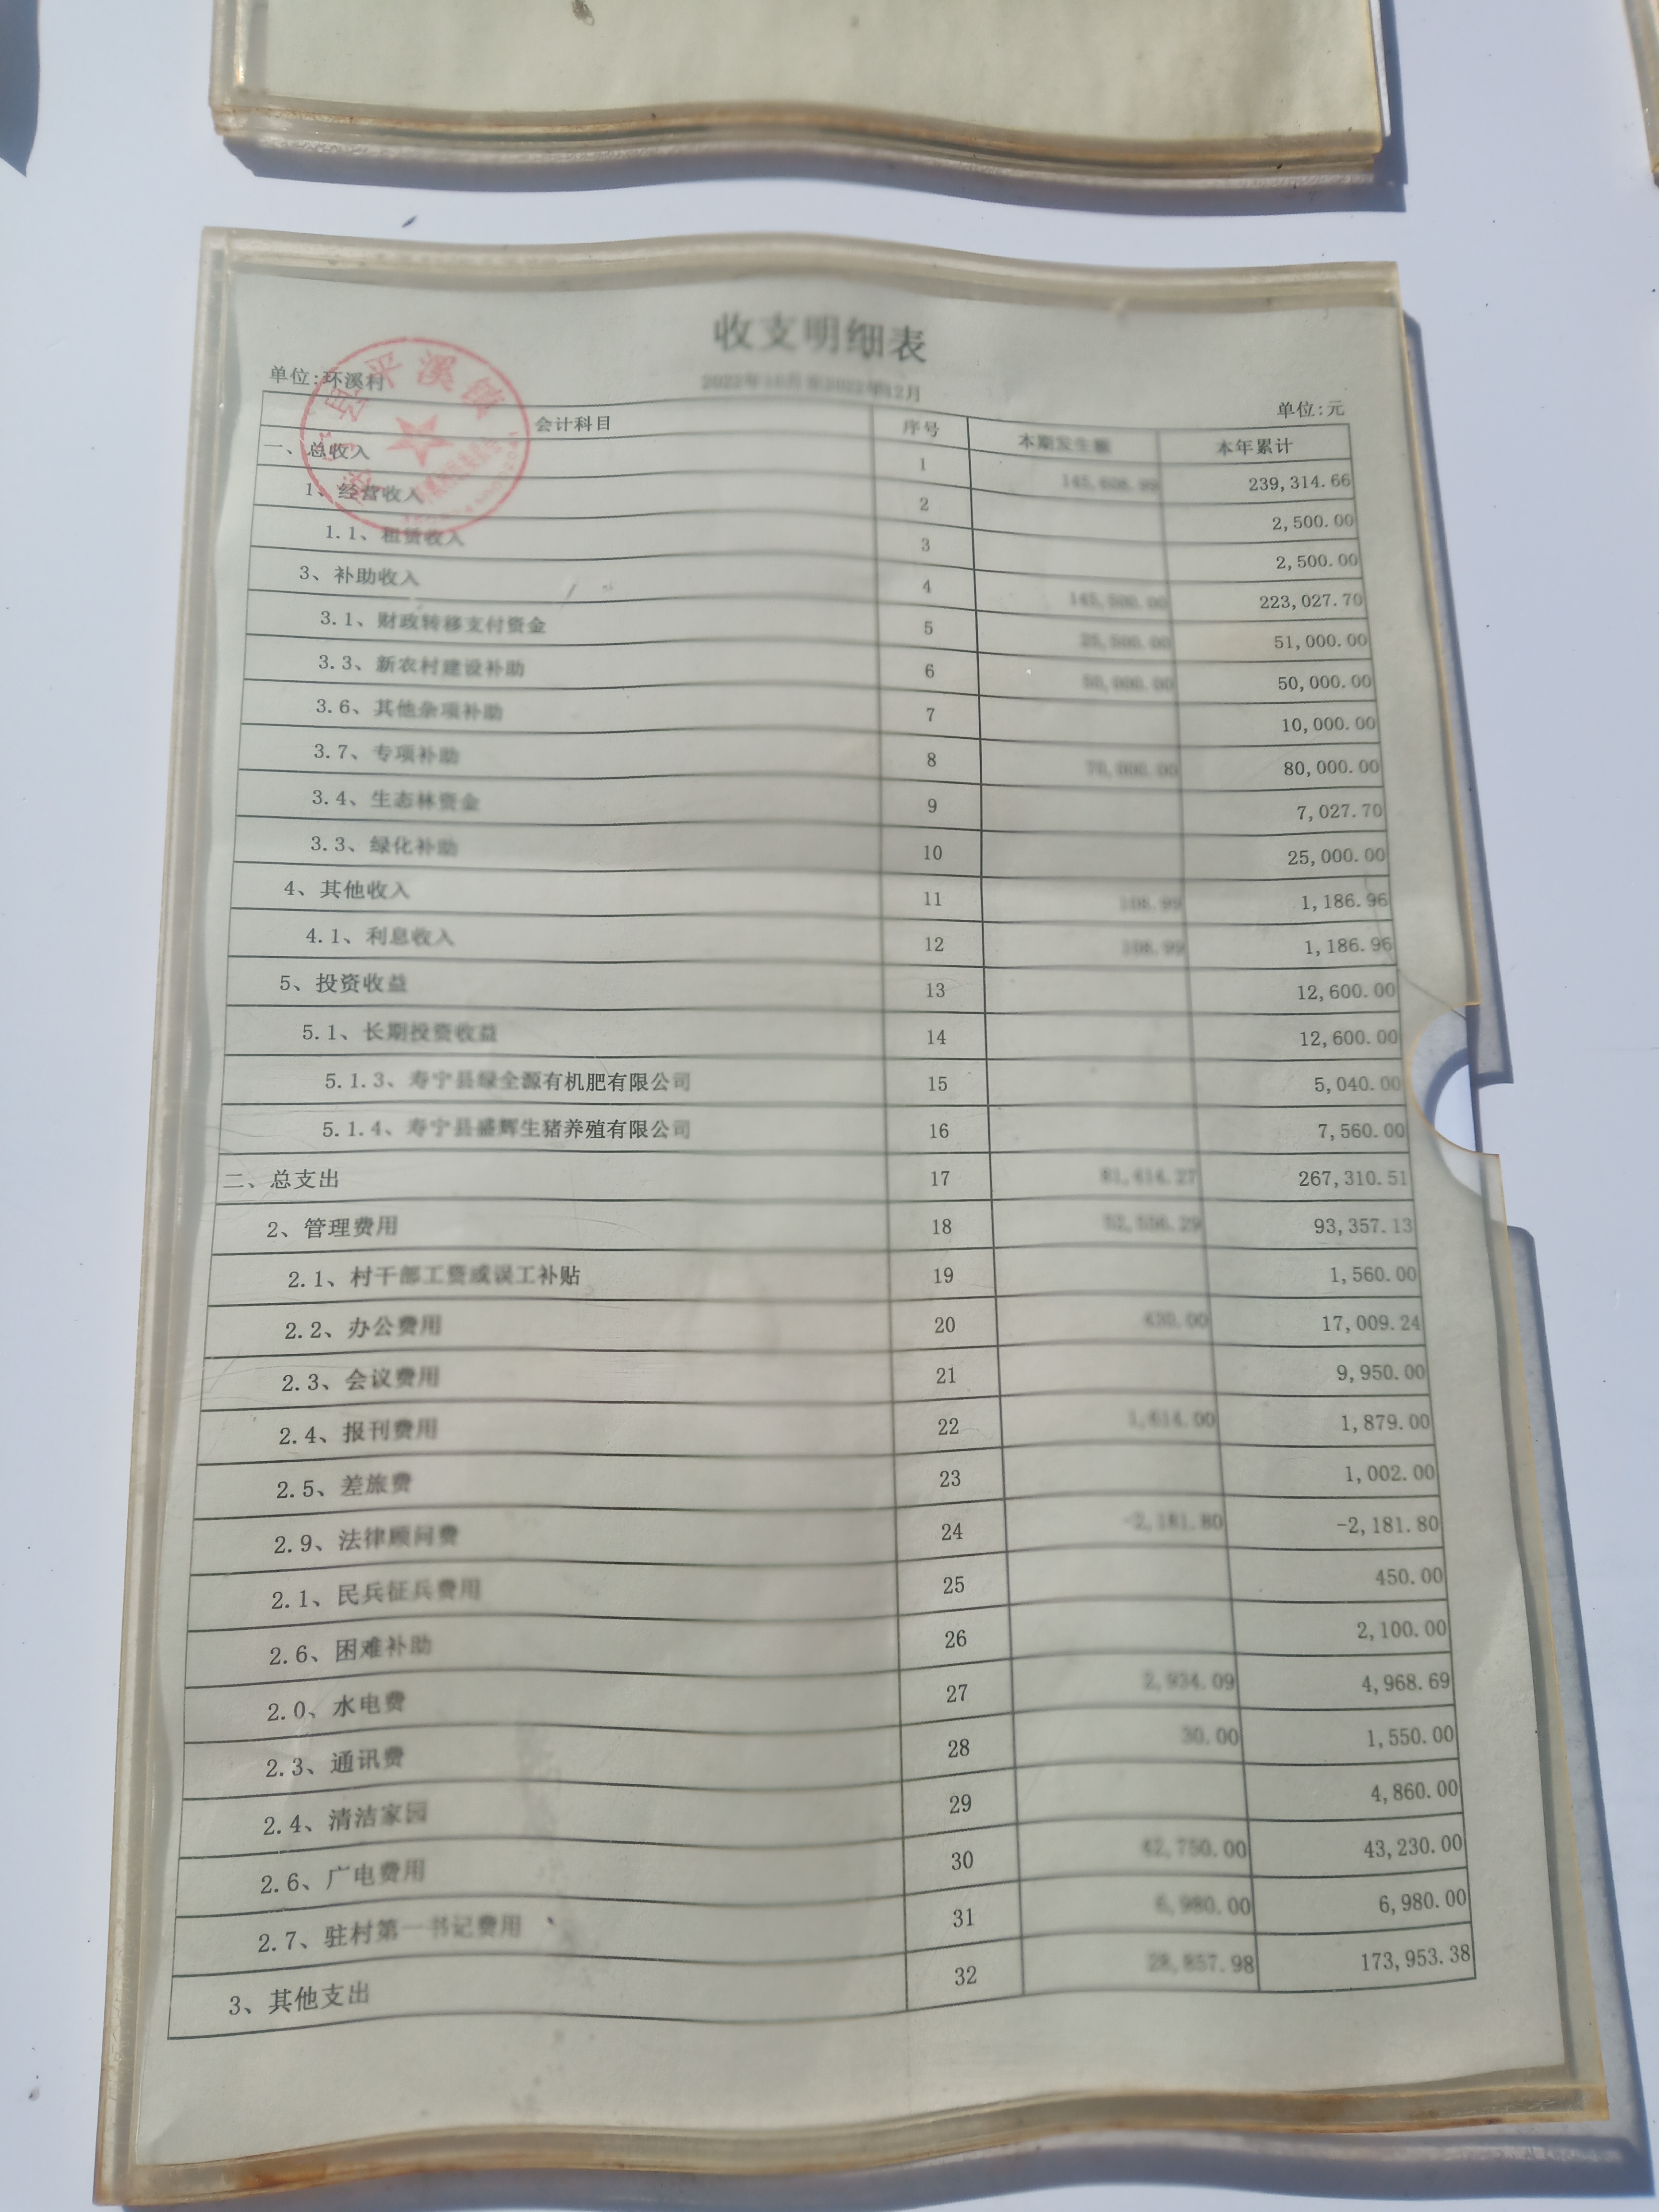 收支明细表
单位:环溪村
2022年10月至2022年12月
单位:元
会计科目 序号 本期发生额 本年累计
一、总收入 1 145,608.99 239,314.66
1、经营收入 2 2,500.00
1.1、租赁收入 3 2,500.00
3、补助收入 4 145,500.00 223,027.70
3.1、财政转移支付资金 5 25,500.00 51,000.00
3.3、新农村建设补助 6 50,000.00 50,000.00
3.6、其他杂项补助 7 10,000.00
3.7、专项补助 8 70,000.00 80,000.00
3.4、生态林资金 9 7,027.70
3.3、绿化补助 10 25,000.00
4、其他收入 11 108.99 1,186.96
4.1、利息收入 12 108.99 1,186.96
5、投资收益 13 12,600.00
5.1、长期投资收益 14 12,600.00
5.1.3、寿宁县绿全源有机肥有限公司 15 5,040.00
5.1.4、寿宁县盛辉生猪养殖有限公司 16 7,560.00
二、总支出 17 81,414.27 267,310.51
2、管理费用 18 52,556.29 93,357.13
2.1、村干部工资或误工补贴 19 1,560.00
2.2、办公费用 20 430.00 17,009.24
2.3、会议费用 21 9,950.00
2.4、报刊费用 22 1,614.00 1,879.00
2.5、差旅费 23 1,002.00
2.9、法律顾问费 24 -2,181.80 -2,181.80
2.1、民兵征兵费用 25 450.00
2.6、困难补助 26 2,100.00
2.0、水电费 27 2,934.09 4,968.69
2.3、通讯费 28 30.00 1,550.00
2.4、清洁家园 29 4,860.00
2.6、广电费用 30 42,750.00 43,230.00
2.7、驻村第一书记费用 31 6,980.00 6,980.00
3、其他支出 32 28,857.98 173,953.38